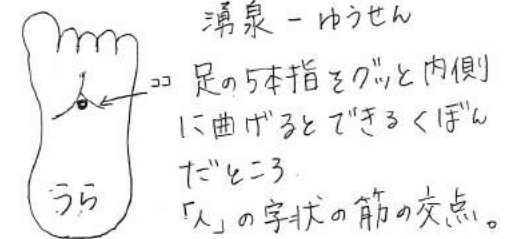 湧泉 - ゆうせん
ココ
足の5本指をグッと内側
に曲げるとできるくぼん
だところ
「人」の字状の筋の交点。
うら